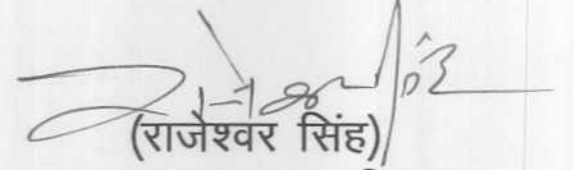 (राजेश्वर सिंह)